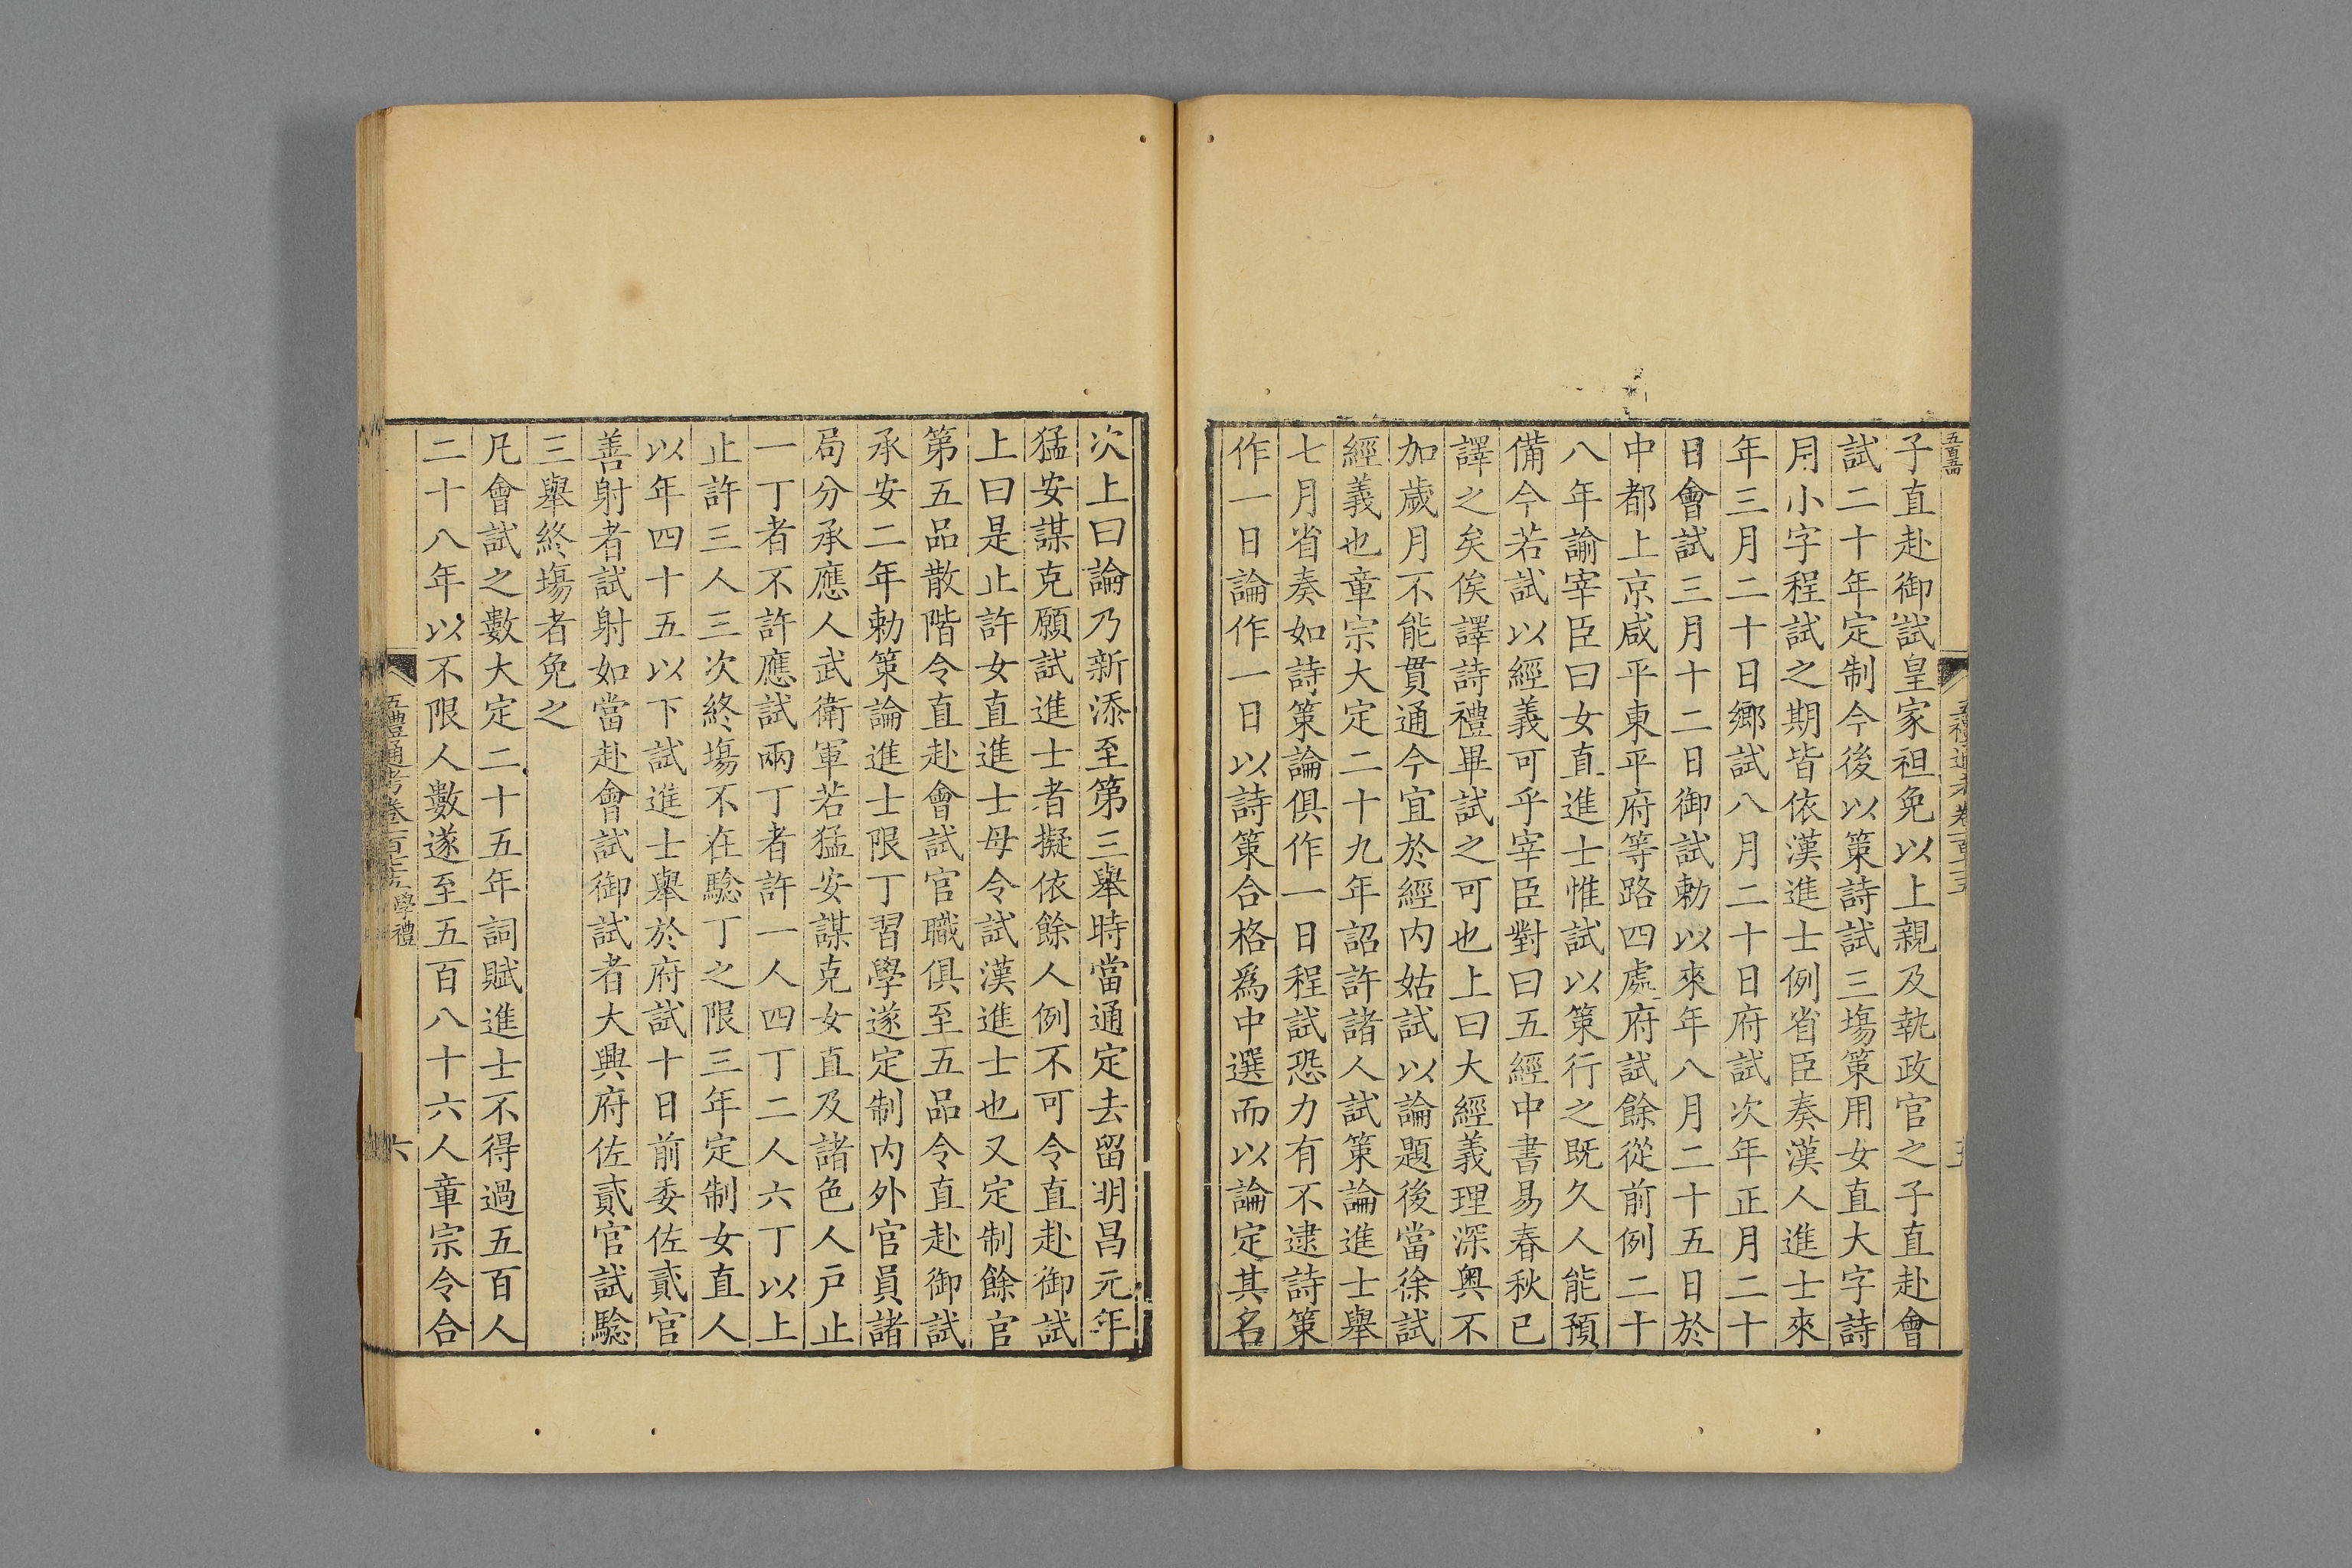 子直赴御試皇家袒免以上親及執政官之子直赴會
試二十年定制今後以策詩試三塲策用女直大字詩
用小字程試之期皆依漢進士例省臣奏漢人進士來
年三月二十日鄉試八月二十日府試次年正月二十
日會試三月十二日御試勅以來年八月二十五日於
中都上京咸平東平府等路四處府試餘從前例二十
八年諭宰臣曰女直進士惟試以策行之既久人能預
備今若試以經義可乎宰臣對曰五經中書易春秋已
譯之矣俟譯詩禮畢試之可也上曰大經義理深奥不
加歲月不能貫通今宜於經内姑試以論題後當徐試
經義也章宗大定二十九年詔許諸人試策論進士舉
七月省奏如詩策論俱作一日程試恐力有不逮詩策
作一日論作一日以詩策合格爲中選而以論定其名
次上曰論乃新添至第三舉時當通定去留明昌元年
猛安謀克願試進士者擬依餘人例不可令直赴御試
上曰是止許女直進士毋令試漢進士也又定制餘官
第五品散階令直赴會試官職俱至五品令直赴御試
承安二年勅策論進士限丁習學遂定制内外官員諸
局分承應人武衛軍若猛安謀克女直及諸色人戸止
一丁者不許應試兩丁者許一人四丁二人六丁以上
止許三人三次終塲不在驗丁之限三年定制女直人
以年四十五以下試進士舉於府試十日前委佐貳官
善射者試射如當赴會試御試者大興府佐貳官試驗
三舉終塲者免之
凡會試之數大定二十五年詞賦進士不得過五百人
二十八年以不限人數遂至五百八十六人章宗令合
五禮通考卷一百七十五 學禮
六